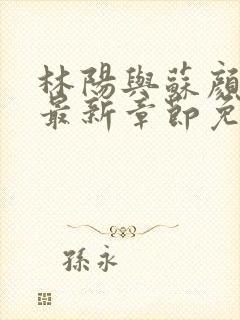 林陽與蘇顏
最新章節免
孫永